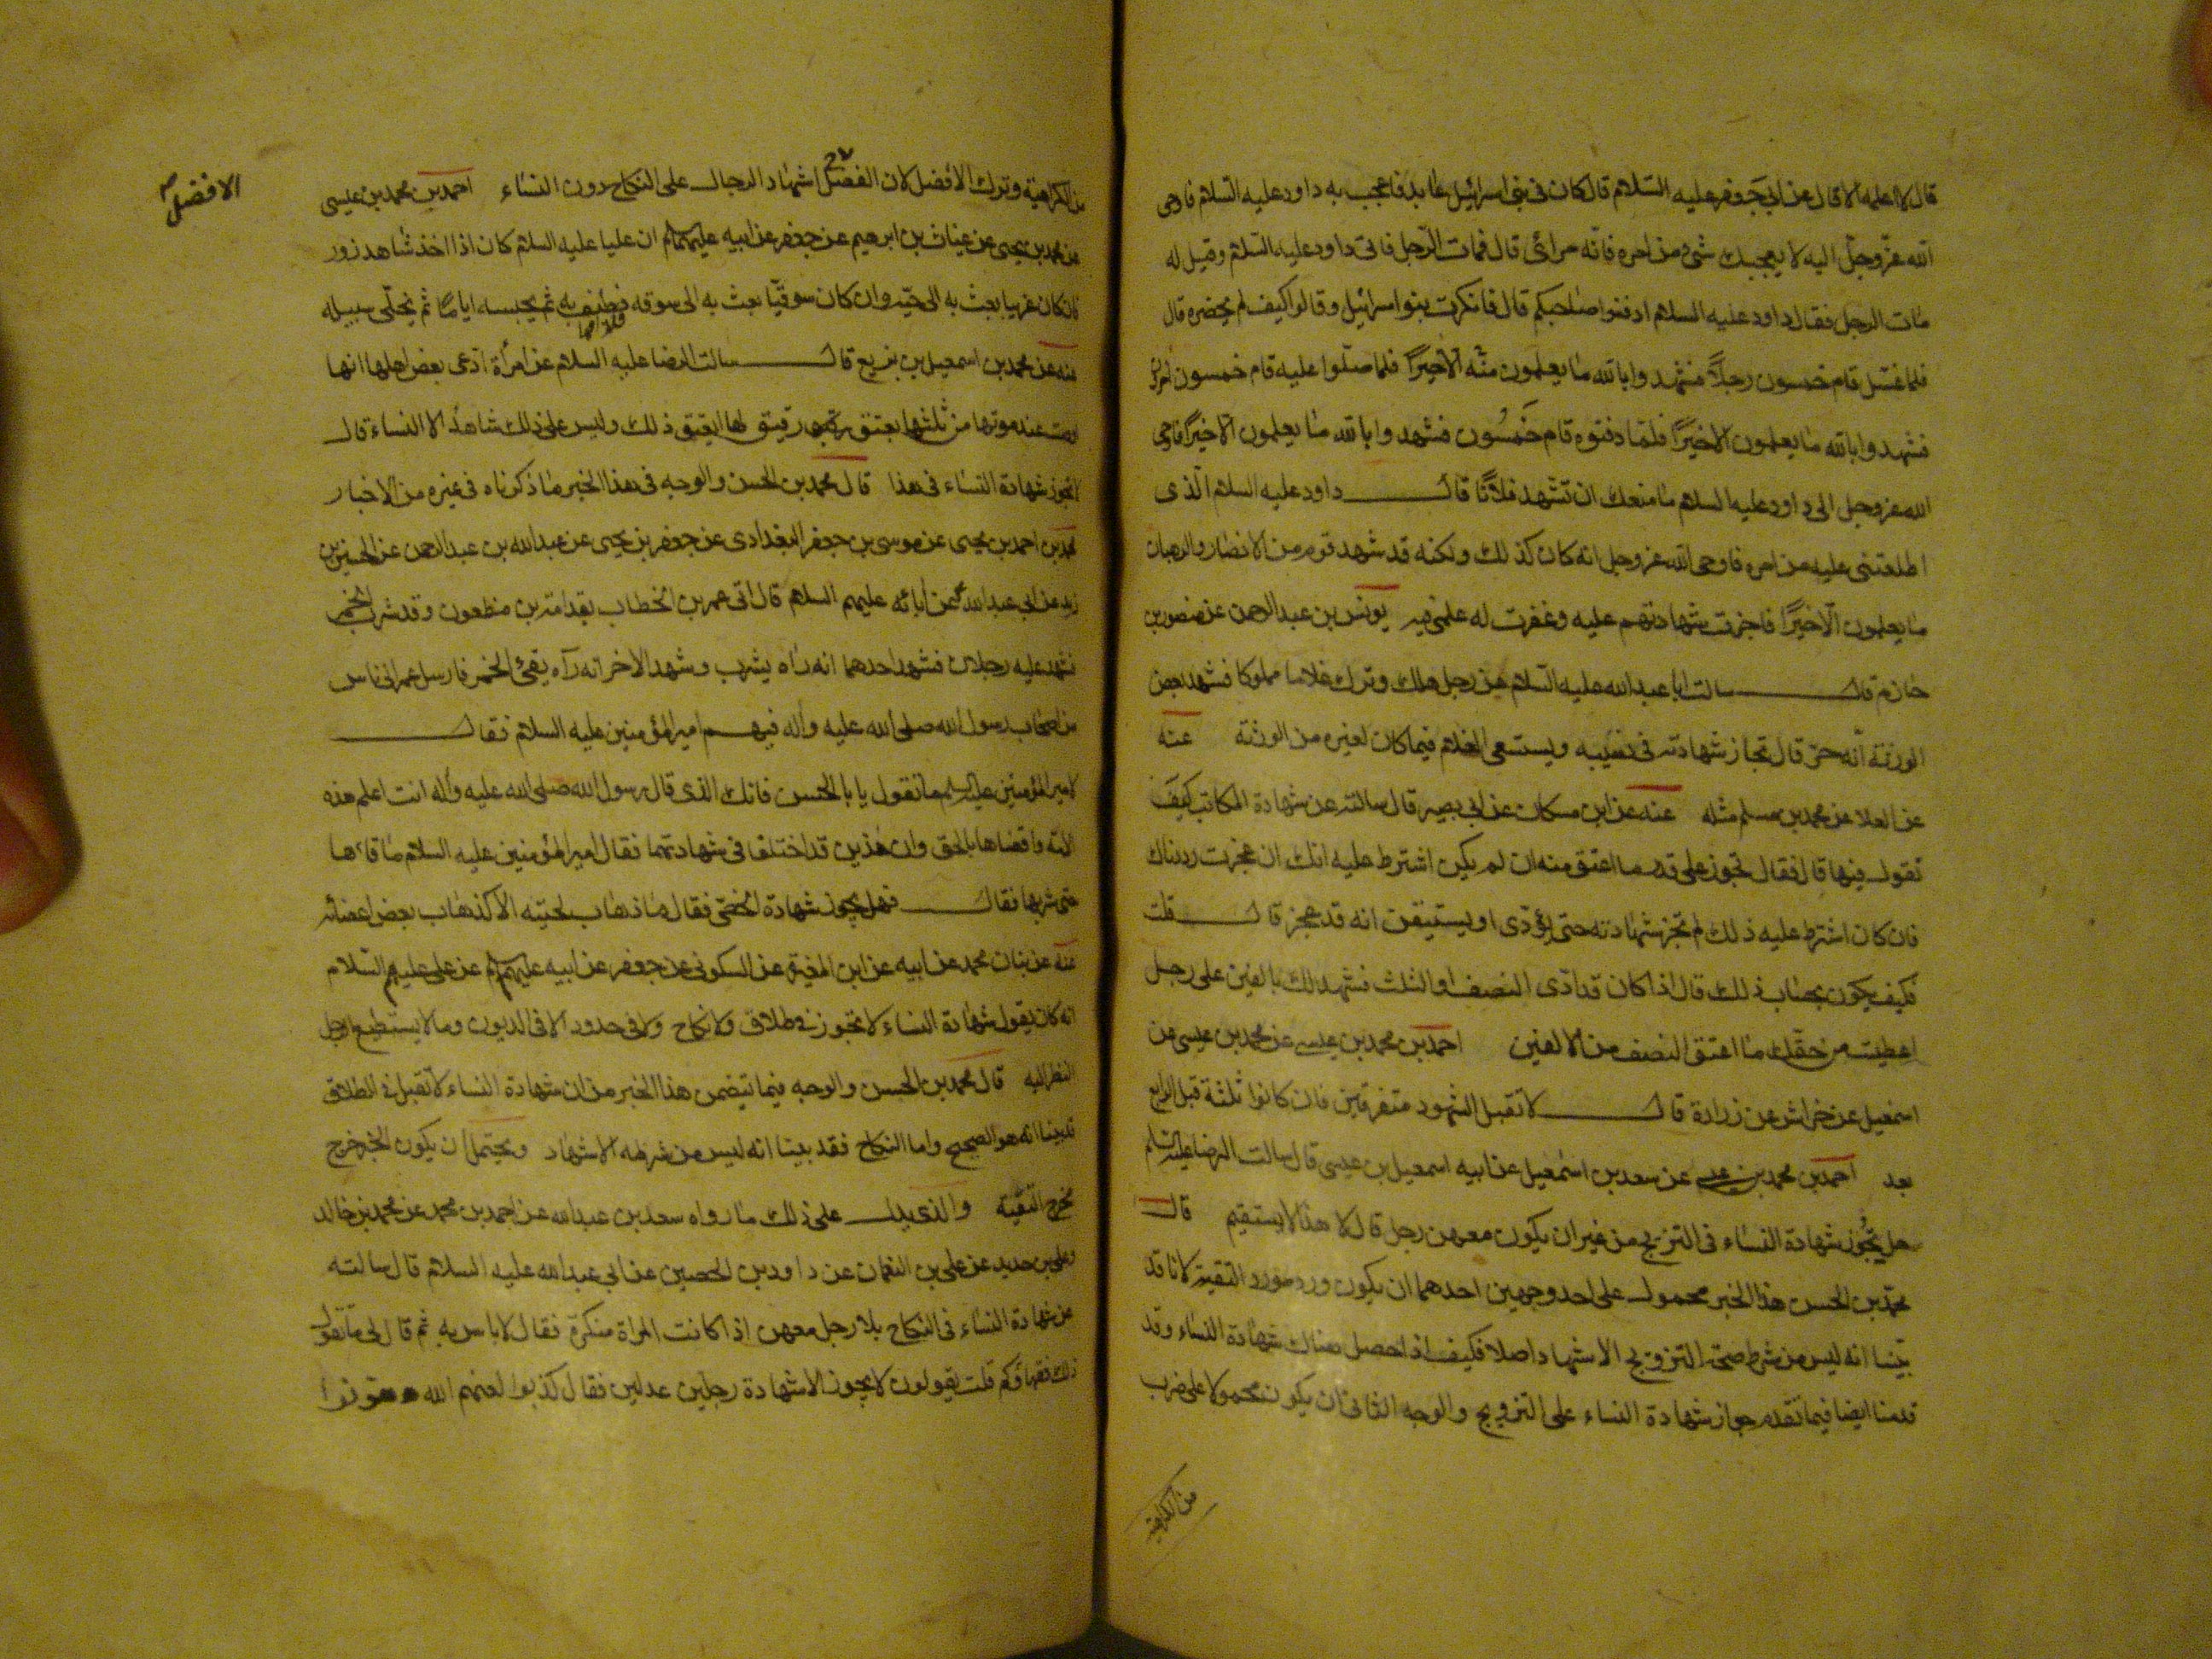 قال لا اعلمه الا قال عن ابي جعفر عليه السلام قال كان في بني اسرائيل عابد فاعجب به داود عليه السلام فاوحى
الله عز وجل اليه لا يعجبك شئ من امره فانه مرائى قال فمات الرجل فاتى داود عليه السلام وقيل له
مات الرجل فقال داود عليه السلام ادفنوا صاحبكم قال فانكرت بنو اسرائيل وقالوا كيف لم يحضره قال
فلما غسل قام خمسون رجلاً فشهدوا بالله ما يعلمون منه الا خيراً فلما صلوا عليه قام خمسون
فشهدوا بالله ما يعلمون الا خيراً فلما دفنوه قام خمسون فشهدوا بالله ما يعلمون الا خيراً فاوحى
الله عز وجل الى داود عليه السلام ما منعك ان تشهد فلانا قال داود عليه السلام الذى
اطلعتنى عليه من امره فاوحى الله عز وجل انه كان كذلك ولكنه قد شهد قوم من الاحبار والرهبان
ما يعلمون الا خيراً فاجزت شهادتهم عليه وغفرت له علمى فيه يونس بن عبد الرحمن عن منصور بن
حازم قال سالت ابا عبد الله عليه السلام عن رجل هلك وترك غلاما مملوكا فشهد بعض
الورثة انه حر قال تجاز شهادته في نصيبه ويستسعى الغلام فيما كان لغيره من الورثة عنه
عن العلا عن محمد بن مسلم مثله عنه عن ابن مسكان عن ابي بصير قال سالته عن شهادة المكاتب كيف
تقول فيها قال فقال تجوز على قدر ما اعتق منه ان لم يكن اشترط عليه انك ان عجزت رددناك
فان كان اشترط عليه ذلك لم تجز شهادته حتى يؤدى او يستيقن انه قد عجز قال قلت
فكيف يكون بحساب ذلك قال اذا كان قد ادى النصف او الثلث فشهد لك بالفين على رجل
اعطيت من حقك ما اعتق النصف من الالفين احمد بن محمد بن عيسى عن محمد بن عيسى عن
اسمعيل عن خراش عن زرارة قال لا تقبل الشهود متفرقين فان كانوا ثلثة قبل الرابع
بعد احمد بن محمد بن عيسى عن سعد بن اسمعيل عن ابيه اسمعيل بن عيسى قال سالت الرضا عليه السلم
هل يجوز شهادة النساء في التزويج من غير ان يكون معهن رجل قال لا هذا لا يستقيم قال
محمد بن الحسن هذا الخبر محمول على احد وجهين احدهما ان يكون ورد مورد التقية لانا قد
بينا انه ليس من شرط صحة التزويج الاشهاد اصلا فكيف اذا حصل هناك شهادة النساء وقد
قدمنا ايضا فيما تقدم جواز شهادة النساء على التزويج والوجه الثانى ان يكون محمولا على ضرب
من الكراهية
٢٧
من الكراهية وترك الافضل لان الفضل اشهاد الرجال على النكاح دون النساء احمد بن محمد بن عيسى
الافضل
عن محمد بن يحيى عن غياث بن ابرهيم عن جعفر عن ابيه عليهما السلام ان عليا عليه السلام كان اذا اخذ شاهد زور
فان كان غريبا بعث به الى حيه وان كان سوقيا بعث به الى سوقه فطيف به ثم يحبسه اياما ثم يخلى سبيله
عنه عن محمد بن اسمعيل بن بزيع قال سالت الرضا عليه السلام عن امرأة ادعى بعض اهلها انها
اوصت عند موتها من ثلثها بعتق رقيق لها ايعتق ذلك وليس على ذلك شاهد الا النساء قال
لا تجوز شهادة النساء في هذا قال محمد بن الحسن والوجه في هذا الخبر ما ذكرناه في غيره من الاخبار
محمد بن احمد بن يحيى عن موسى بن جعفر البغدادى عن جعفر بن يحيى عن عبد الله بن عبد الرحمن عن الحسين بن
زيد عن ابي عبد الله عن ابائه عليهم السلام قال اتى عمر بن الخطاب بقدامة بن مظعون وقد شرب الخمر
فشهد عليه رجلان فشهد احدهما انه رآه يشرب وشهد الاخر انه رآه يقئ الخمر فارسل عمر الى ناس
من اصحاب رسول الله صلى الله عليه واله فيهم امير المؤمنين عليه السلام فقال
لامير المؤمنين عليه السلم ما تقول يابا الحسن فانك الذى قال رسول الله صلى الله عليه واله انت اعلم هذه
الامة واقضاها بالحق وان هذين قد اختلفا في شهادتهما فقال امير المؤمنين عليه السلام ما قاءها
حتى شربها فقال فهل يجوز شهادة الخصى فقال ما ذهاب لحيته الا كذهاب بعض اعضائه
عنه عن بنان بن محمد عن ابيه عن ابن المغيرة عن السكونى عن جعفر عن ابيه عليهما السلام عن على عليهم السلام
انه كان يقول شهادة النساء لا تجوز في طلاق ولا نكاح ولا في حدود الا في الديون وما لا يستطيع الرجل
النظر اليه قال محمد بن الحسن والوجه فيما تيضمن هذا الخبر من ان شهادة النساء لا تقبل في الطلاق
قد بينا انه هو الصحيح واما النكاح فقد بينا انه ليس من شرطه الاشهاد ويحتمل ان يكون الخبر خرج
مخرج التقية والذى يدل على ذلك ما رواه سعد بن عبد الله عن احمد بن محمد عن محمد بن خالد
وعلى بن حديد عن على بن النعمان عن داود بن الحصين عن ابي عبد الله عليه السلام قال سالته
عن شهادة النساء في النكاح بلا رجل معهن اذا كانت المراة منكرة فقال لا باس به ثم قال لى ما تقول
في ذلك فقهاؤكم قلت يقولون لا يجوز الا شهادة رجلين عدلين فقال كذبوا لعنهم الله